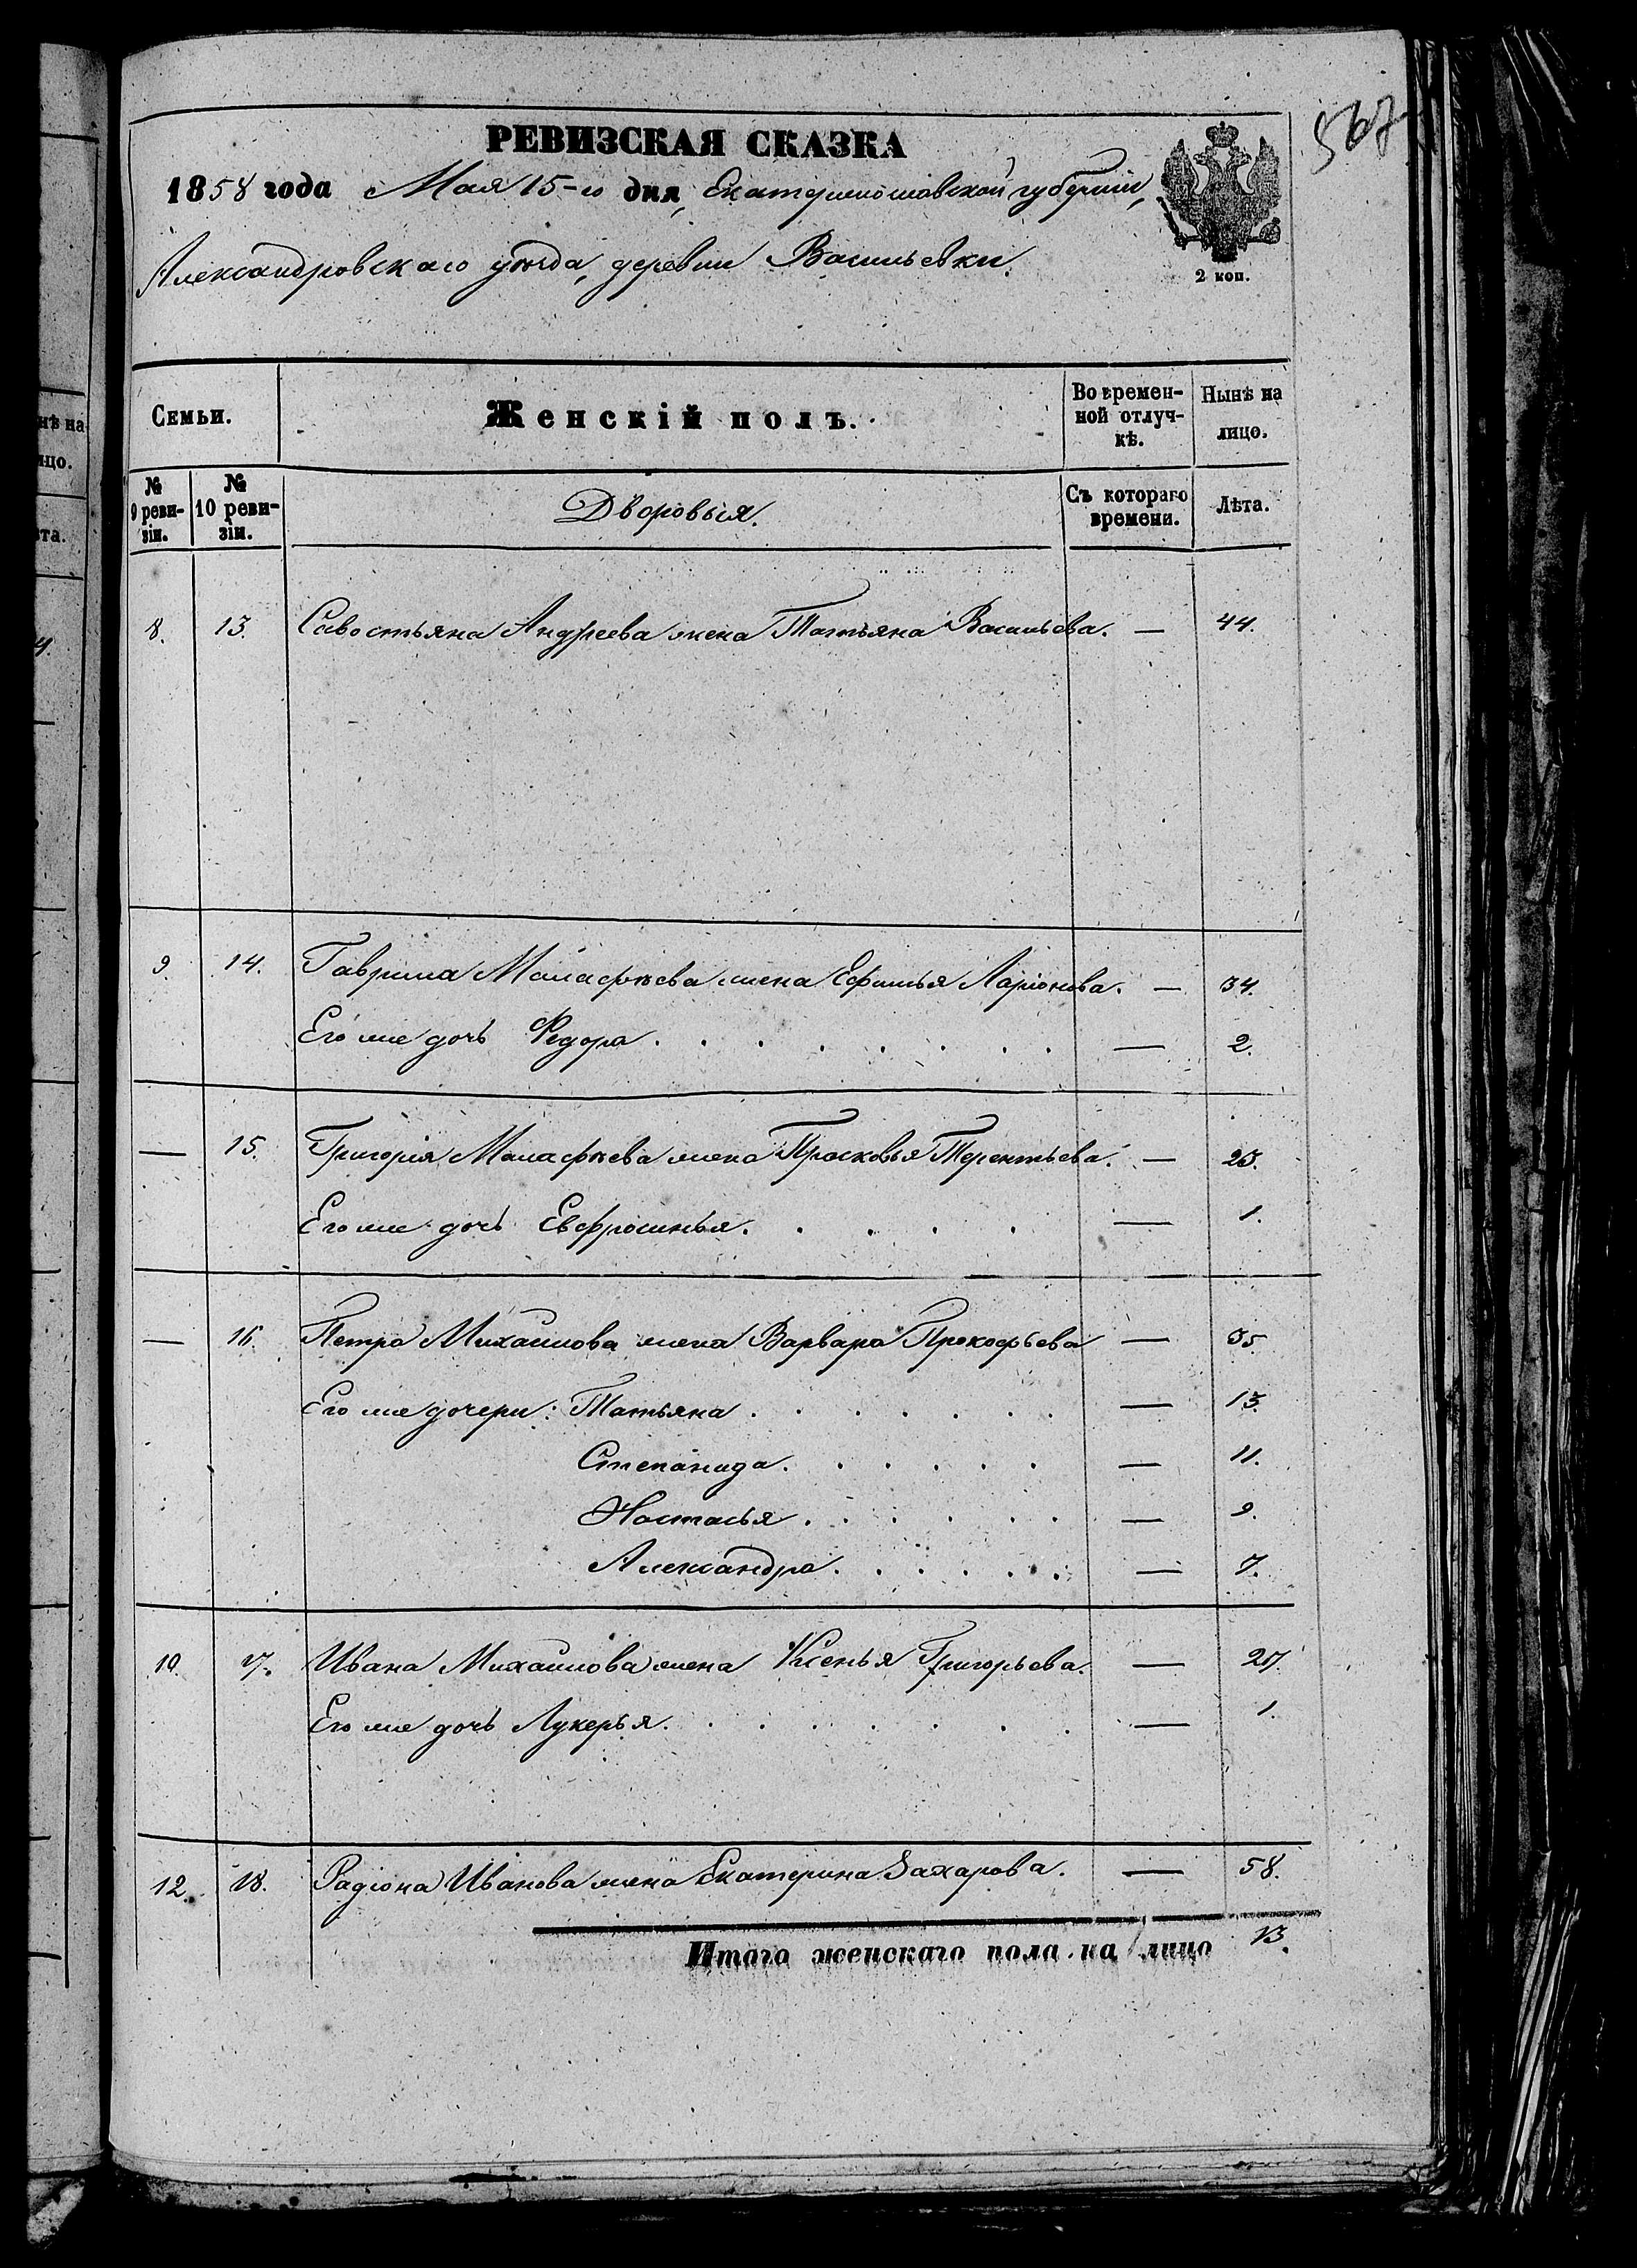 567
РЕВИЗСКАЯ СКАЗКА
1858 года Мая 15-го дня, Екатеринославской губерніи,
Александровскаго уѣзда, деревни Васильевки.
2 коп.
Семьи. Женскій полъ. Во времен-ной отлуч-кѣ. Нынѣ на лицо.
№ 9 реви-зіи. № 10 реви-зіи. Дворовыя. Съ котораго времени. Лѣта.
8. 13. Савостьяна Андреева жена Татьяна Васильева. — 44.
9. 14. Гаврила Малафѣева жена Ефимья Ларіонова. — 34.
Его же дочь Федора — 2.
— 15. Григорія Малафѣева жена Прасковья Терентьева. — 25.
Его же дочь Евфросинья. — 1.
— 16. Петра Михайлова жена Варвара Прокофьева — 35.
Его же дочери: Татьяна — 13.
Степанида. — 11.
Настасья. — 9.
Александра. — 7.
10. 17. Ивана Михайлова жена Ксенья Григорьева. — 27.
Его же дочь Лукерья. — 1.
12. 18. Радіона Иванова жена Екатерина Захарова. — 58.
Итого женскаго пола на лицо 13.
нѣ на
ицо.
ѣта.